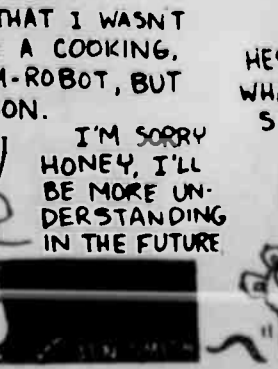 THAT I WASN'T
A COOKING,
M-ROBOT, BUT
ON.
I'M SORRY
HONEY, I'LL
BE MORE UN-
DERSTANDING
IN THE FUTURE
HE
WH
S